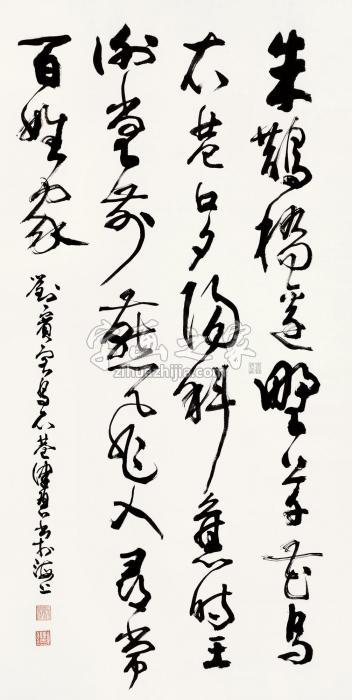 朱鹊桥边野草花乌
衣巷口夕阳斜旧时王
谢堂前燕飞入寻常
百姓家
刘宾客乌衣巷 书于海上
字画之家
zihuazhijia.com